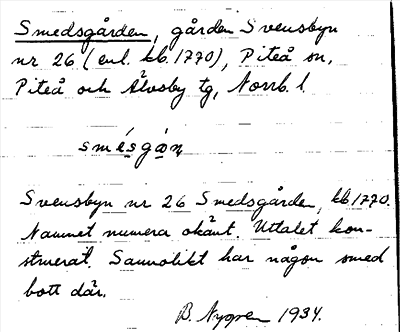 Smedsgården, gården Svensbyn
nr 26 (enl. kb. 1770), Piteå sn,
Piteå och Älvsby tg, Norrb. l.
smésgọ̄ṇ
Svensbyn nr 26 Smedsgården, kb 1770.
Namnet numera okänt. Uttalet kon-
struerat. Sannolikt har någon smed
bott där.
B. Nygren 1934.